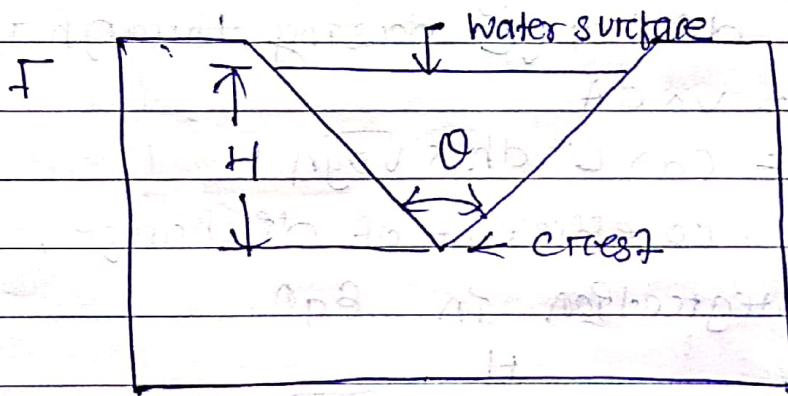 water surface
H
θ
crest